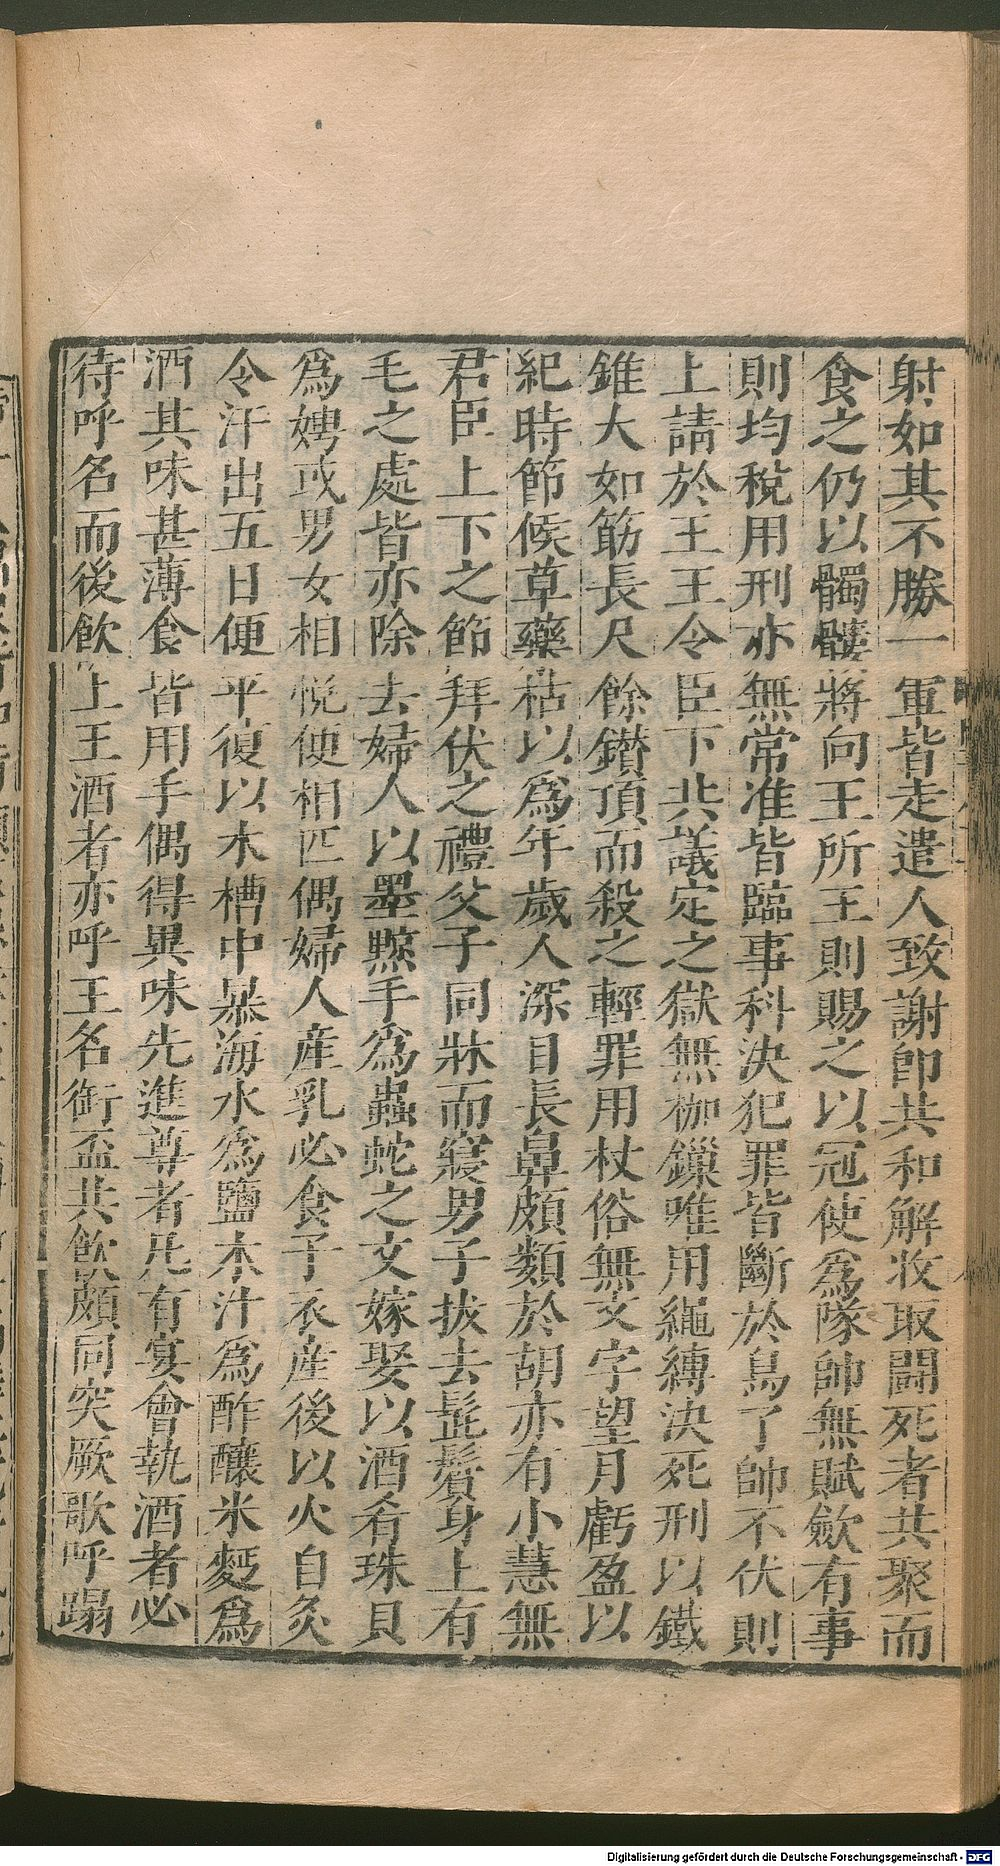 射如其不勝一軍皆走遣人致謝即共和解收取鬪死者共聚而
食之仍以髑髏將向王所王則賜之以冠使爲隊帥無賦斂有事
則均稅用刑亦無常准皆臨事科決犯罪皆斷於鳥了帥不伏則
上請於王王令臣下共議定之獄無枷鏁唯用繩縛決死刑以鐵
錐大如筯長尺餘鑚頂而殺之輕罪用杖俗無文字望月虧盈以
紀時節候草藥枯以爲年歲人深目長鼻頗類於胡亦有小慧無
君臣上下之節拜伏之禮父子同牀而寢男子拔去髭鬢身上有
毛之處皆亦除去婦人以墨黥手爲蟲蛇之文嫁娶以酒肴珠貝
爲娉或男女相悅便相匹偶婦人產乳必食子衣產後以火自灸
令汗出五日便平復以木槽中暴海水爲鹽木汁爲酢釀米麪爲
酒其味甚薄食皆用手偶得異味先進尊者凡有宴會執酒者必
待呼名而後飲上王酒者亦呼王名銜盃共飲頗同突厥歌呼蹋
Digitalisierung gefördert durch die Deutsche Forschungsgemeinschaft - DFG